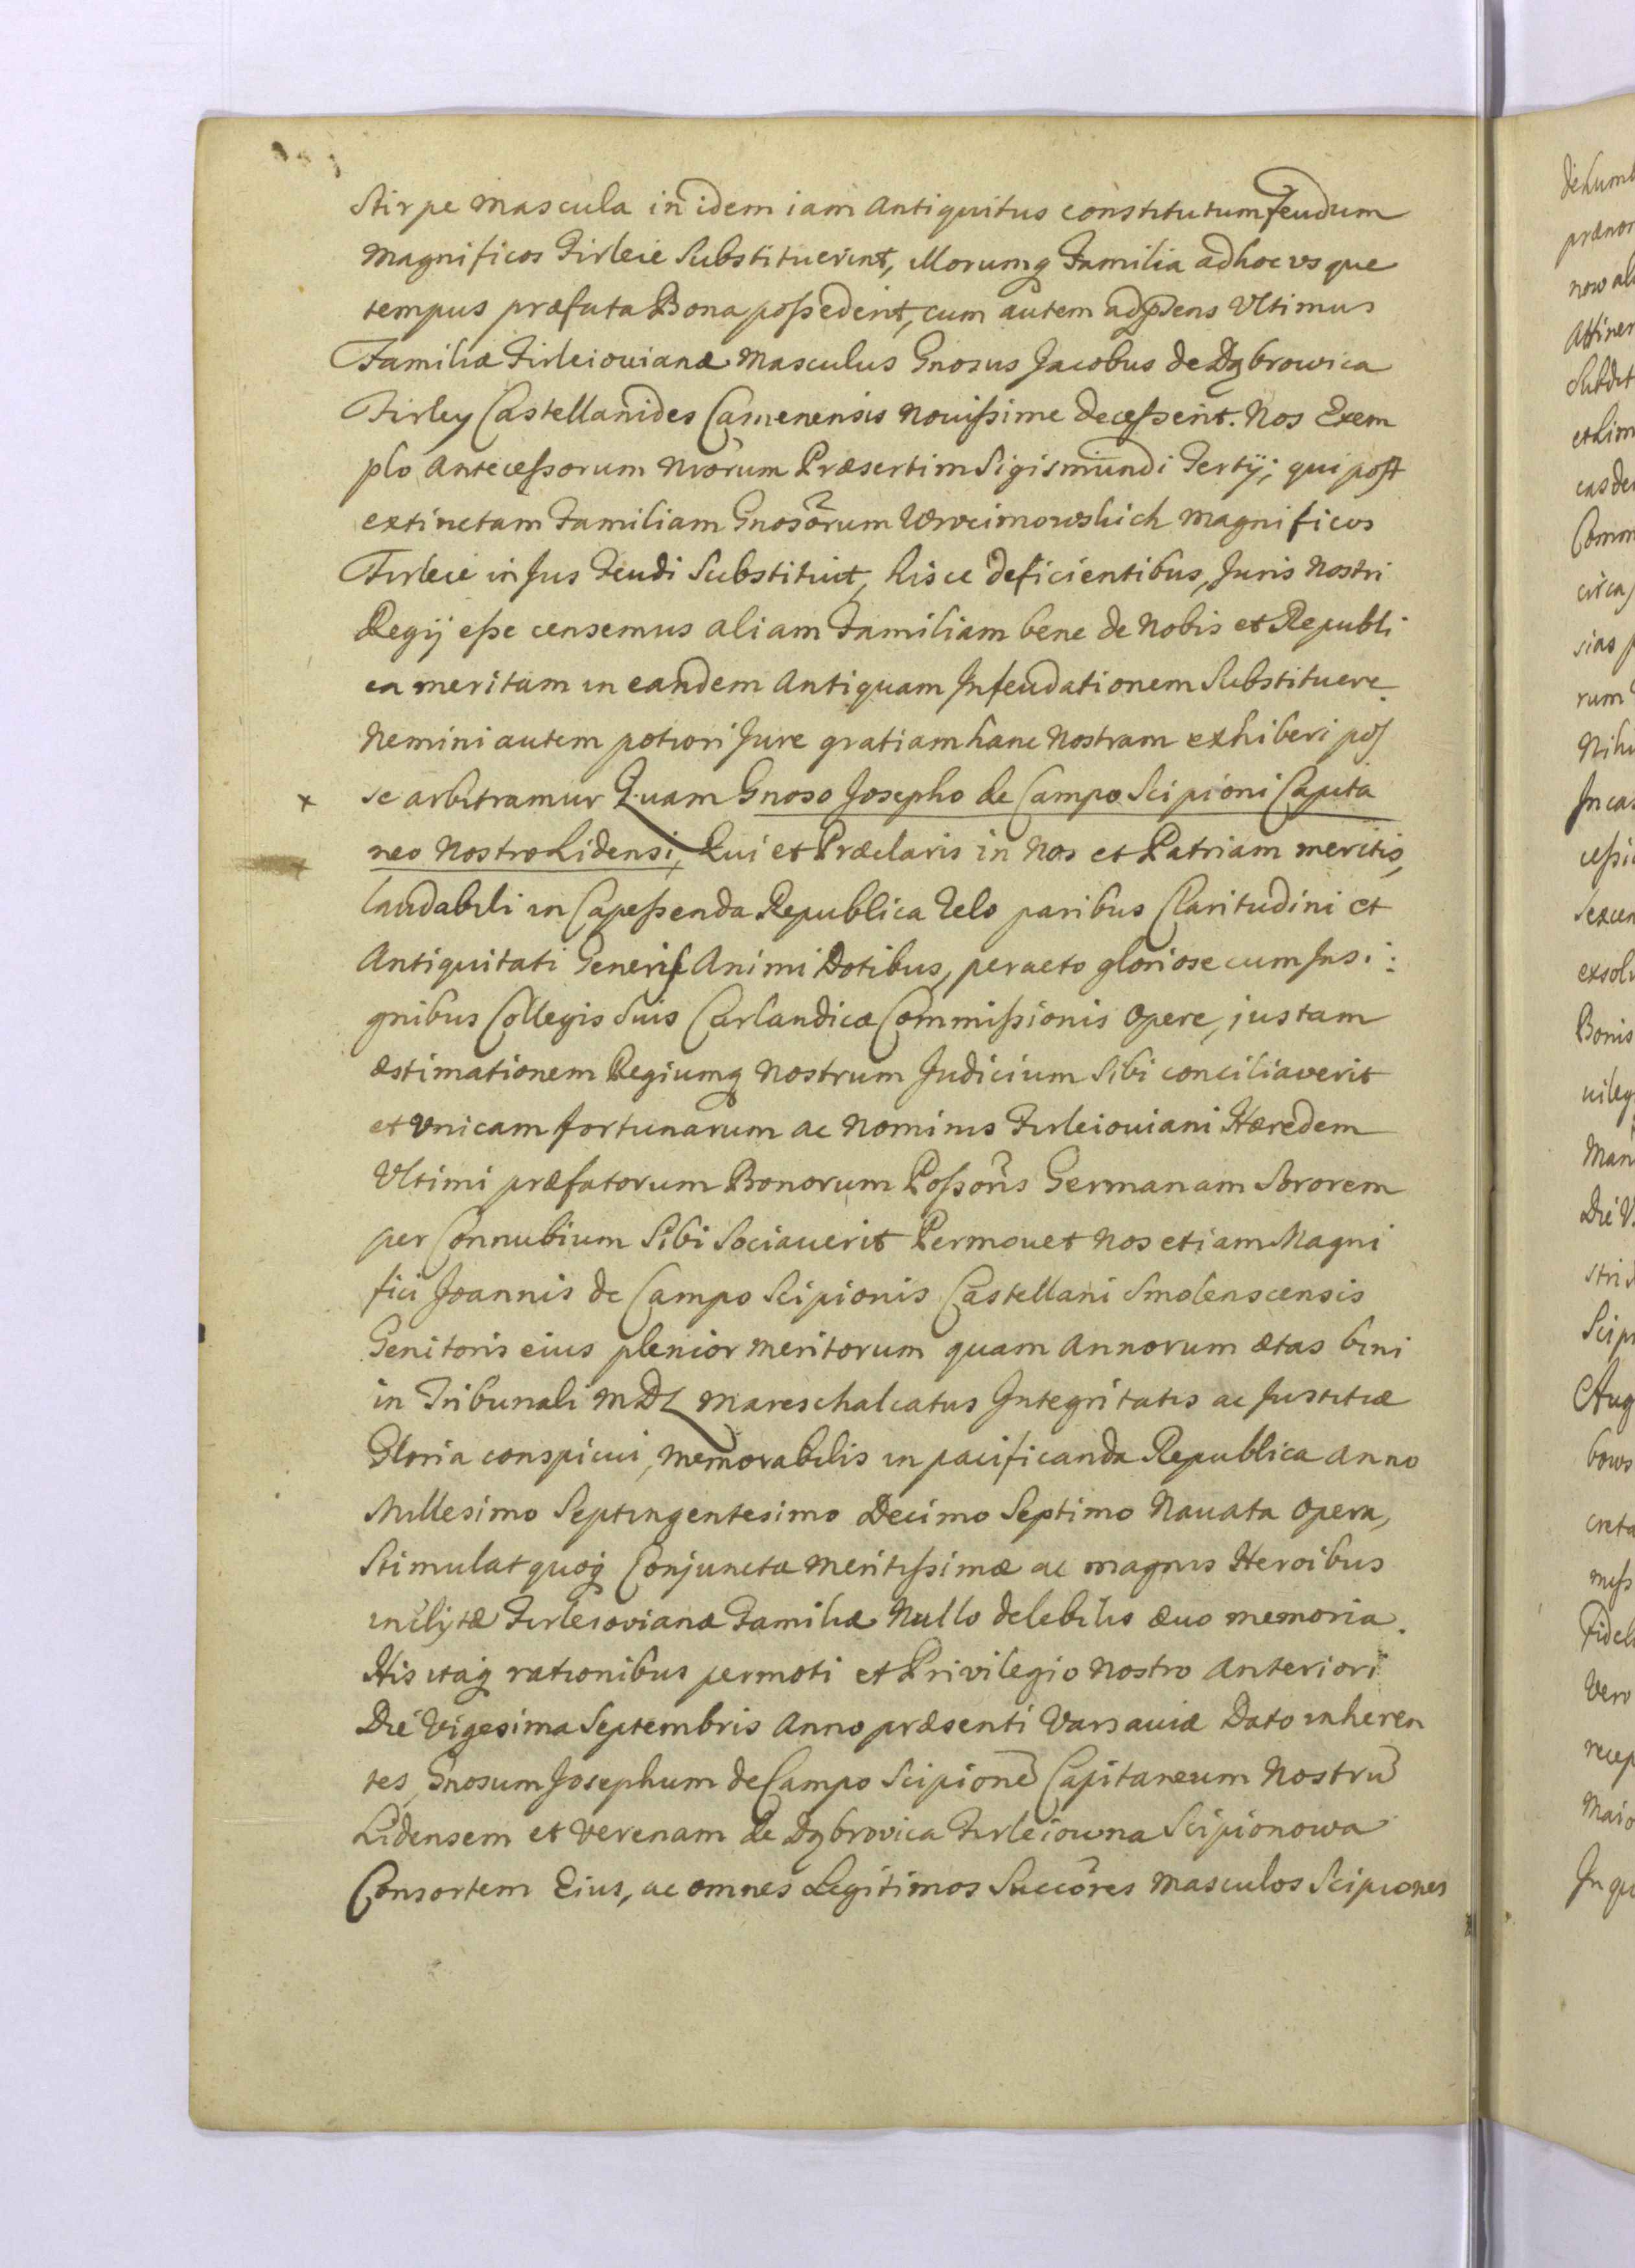 Stirpe mascula in idem iam Antiquitus constitutum feudum
Magnificos Firleie Substituerint, Illorumq Familia adhoc usque
tempus præfata Bona poſsederit, cum autem adpsens Vltimus
Familiæ Firleiouianæ Masculus Gnosus Jacobus de Dąbrowica
Firley Castellanides Camenensis Nouiſsime deceſserit. Nos Exem
plo Anteceſsorum Nrorum Præsertim Sigismundi Tertÿ; qui post
extinctam Familiam Gnosorum Magnificos
Firleie in Jus Feudi Substituit, hisce deficientibus, Juris Nostri
Regÿ eſse censemus aliam Familiam bene de Nobis et Republi
ca meritam in eandem Antiquam Infeudationem Substituere.
Nemini autem potiori Jure gratiam hanc Nostram exhiberi poſ
x se arbitramur Quam Gnoso Josepho de Campo Scipioni Capita
neo Nostro Lidensi, Qui et Præclaris in Nos et Patriam meritis,
laudabili in Capeſsenda Republica Zelo paribus Claritudini et
Antiquitati Generis Animi Dotibus, peracto gloriose cum Insi:
gnibus Collegis Suis Curlandicæ Commiſsionis Opere, justam
æstimationem Regiumq Nostrum Judicium Sibi conciliaverit
et Vnicam fortunarum ac Nominis Firleiouiani Hæredem
Vltimi præfatorum Bonorum Poſsoris Germanam Sororem
per Connubium Sibi Sociauerit Permouet Nos etiam Magni
fici Joannis de Campo Scipionis Castellani Smolenscensis
Genitoris eius plenior Meritorum quam Annorum ætas bini
in Tribunali MDL Mareschalcatus Integritatis ac Justitiæ
Gloria conspicui, Memorabilis in pacificanda Republica Anno
Millesimo Septingentesimo Decimo Septimo Nauata Opera,
Stimulat quoq Conjuncta Meritiſsimæ ac magnis Heroibus
inclytæ Firleiovianæ Familiæ Nullo delebilis æuo memoria.
His itaq rationibus permoti et Privilegio Nostro Anteriori
Die Vigesima Septembris Anno præsenti Varsauiæ Dato inheren
tes, Gnosum Josephum de Campo Scipionē Capitaneum Nostrū
Lidensem et Verenam de Dąbrovica Firleiowna Scipionowa
Consortem Eius, ac omnes Legitimos Succores Masculos Scipiones